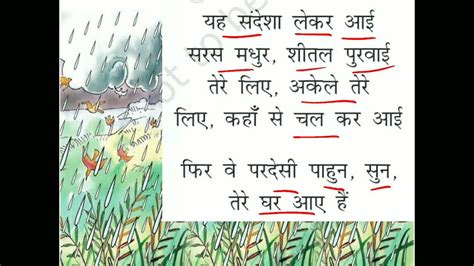 यह संदेशा लेकर आई
सरस मधुर, शीतल पुरवाई
तेरे लिए, अकेले तेरे
लिए, कहाँ से चल कर आई
फिर वे परदेसी पाहुन, सुन,
तेरे घर आए हैं